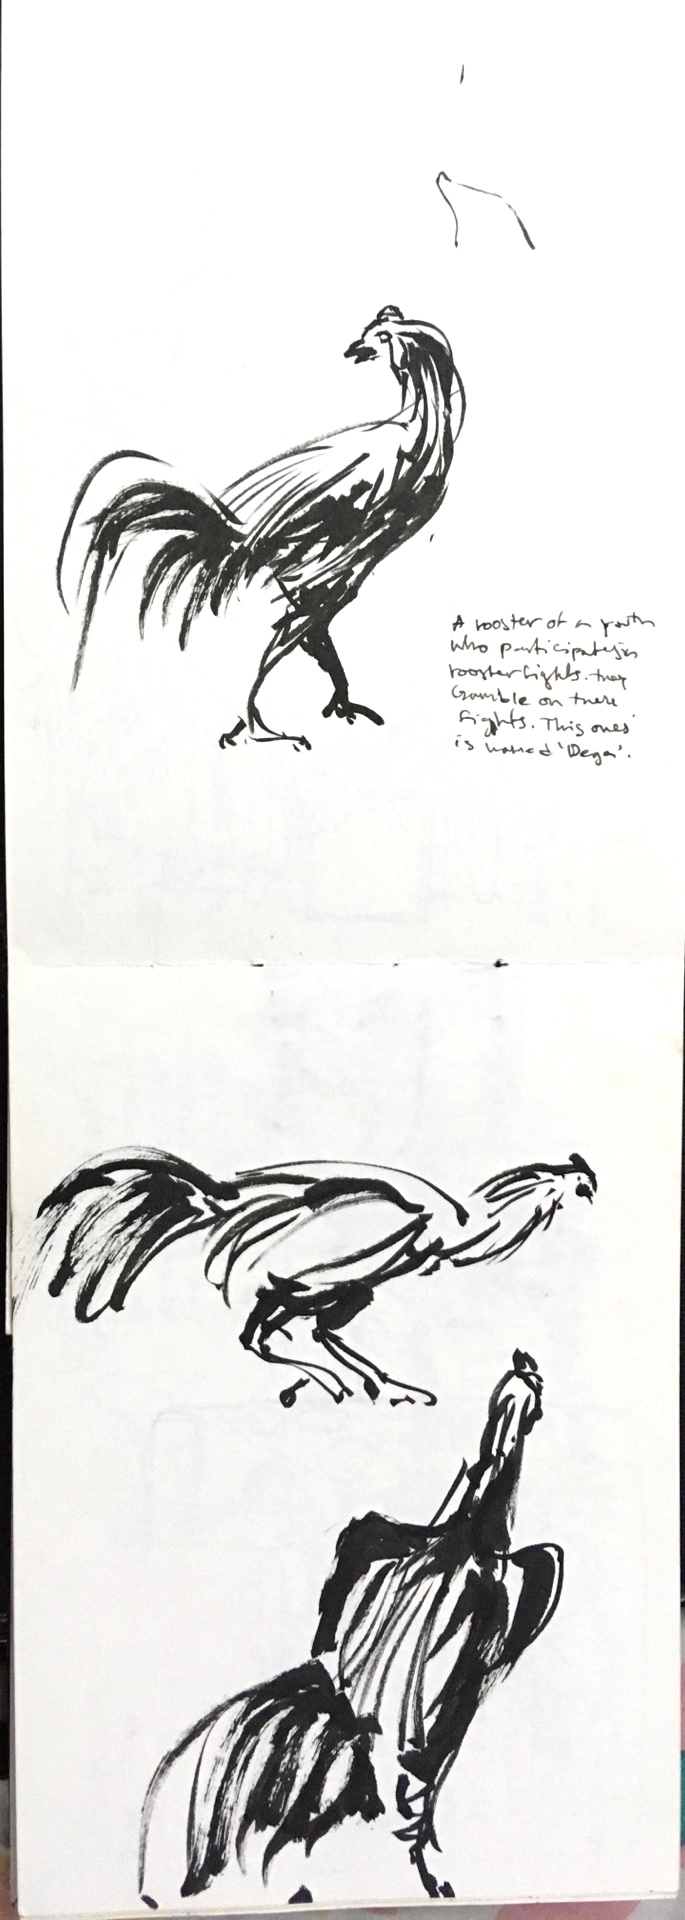 A rooster of a youth
who participates in
rooster fights. they
Gamble on these
fights. This ones'
is named 'Dega'.